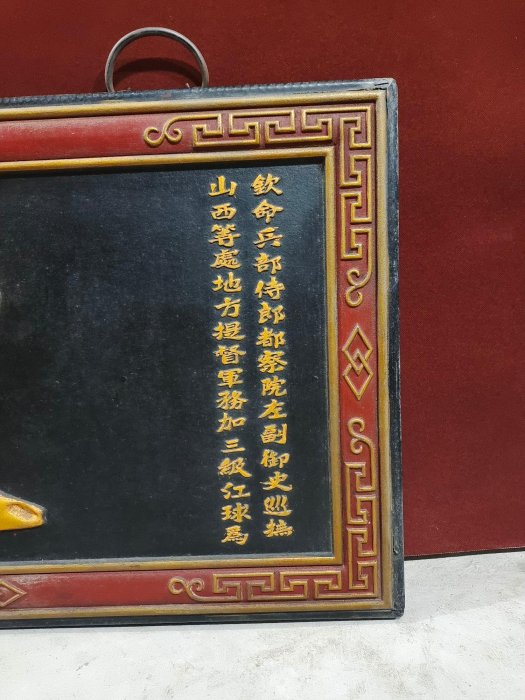 欽命兵部侍郎都察院左副御史巡撫
山西等處地方提督軍務加三級江球爲